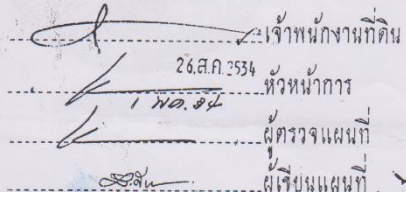 เจ้าพนักงานที่ดิน
26.ส.ค.2534 หัวหน้าการ
1 พ.ย. 34
ผู้ตรวจแผนที่
ผู้เขียนแผนที่